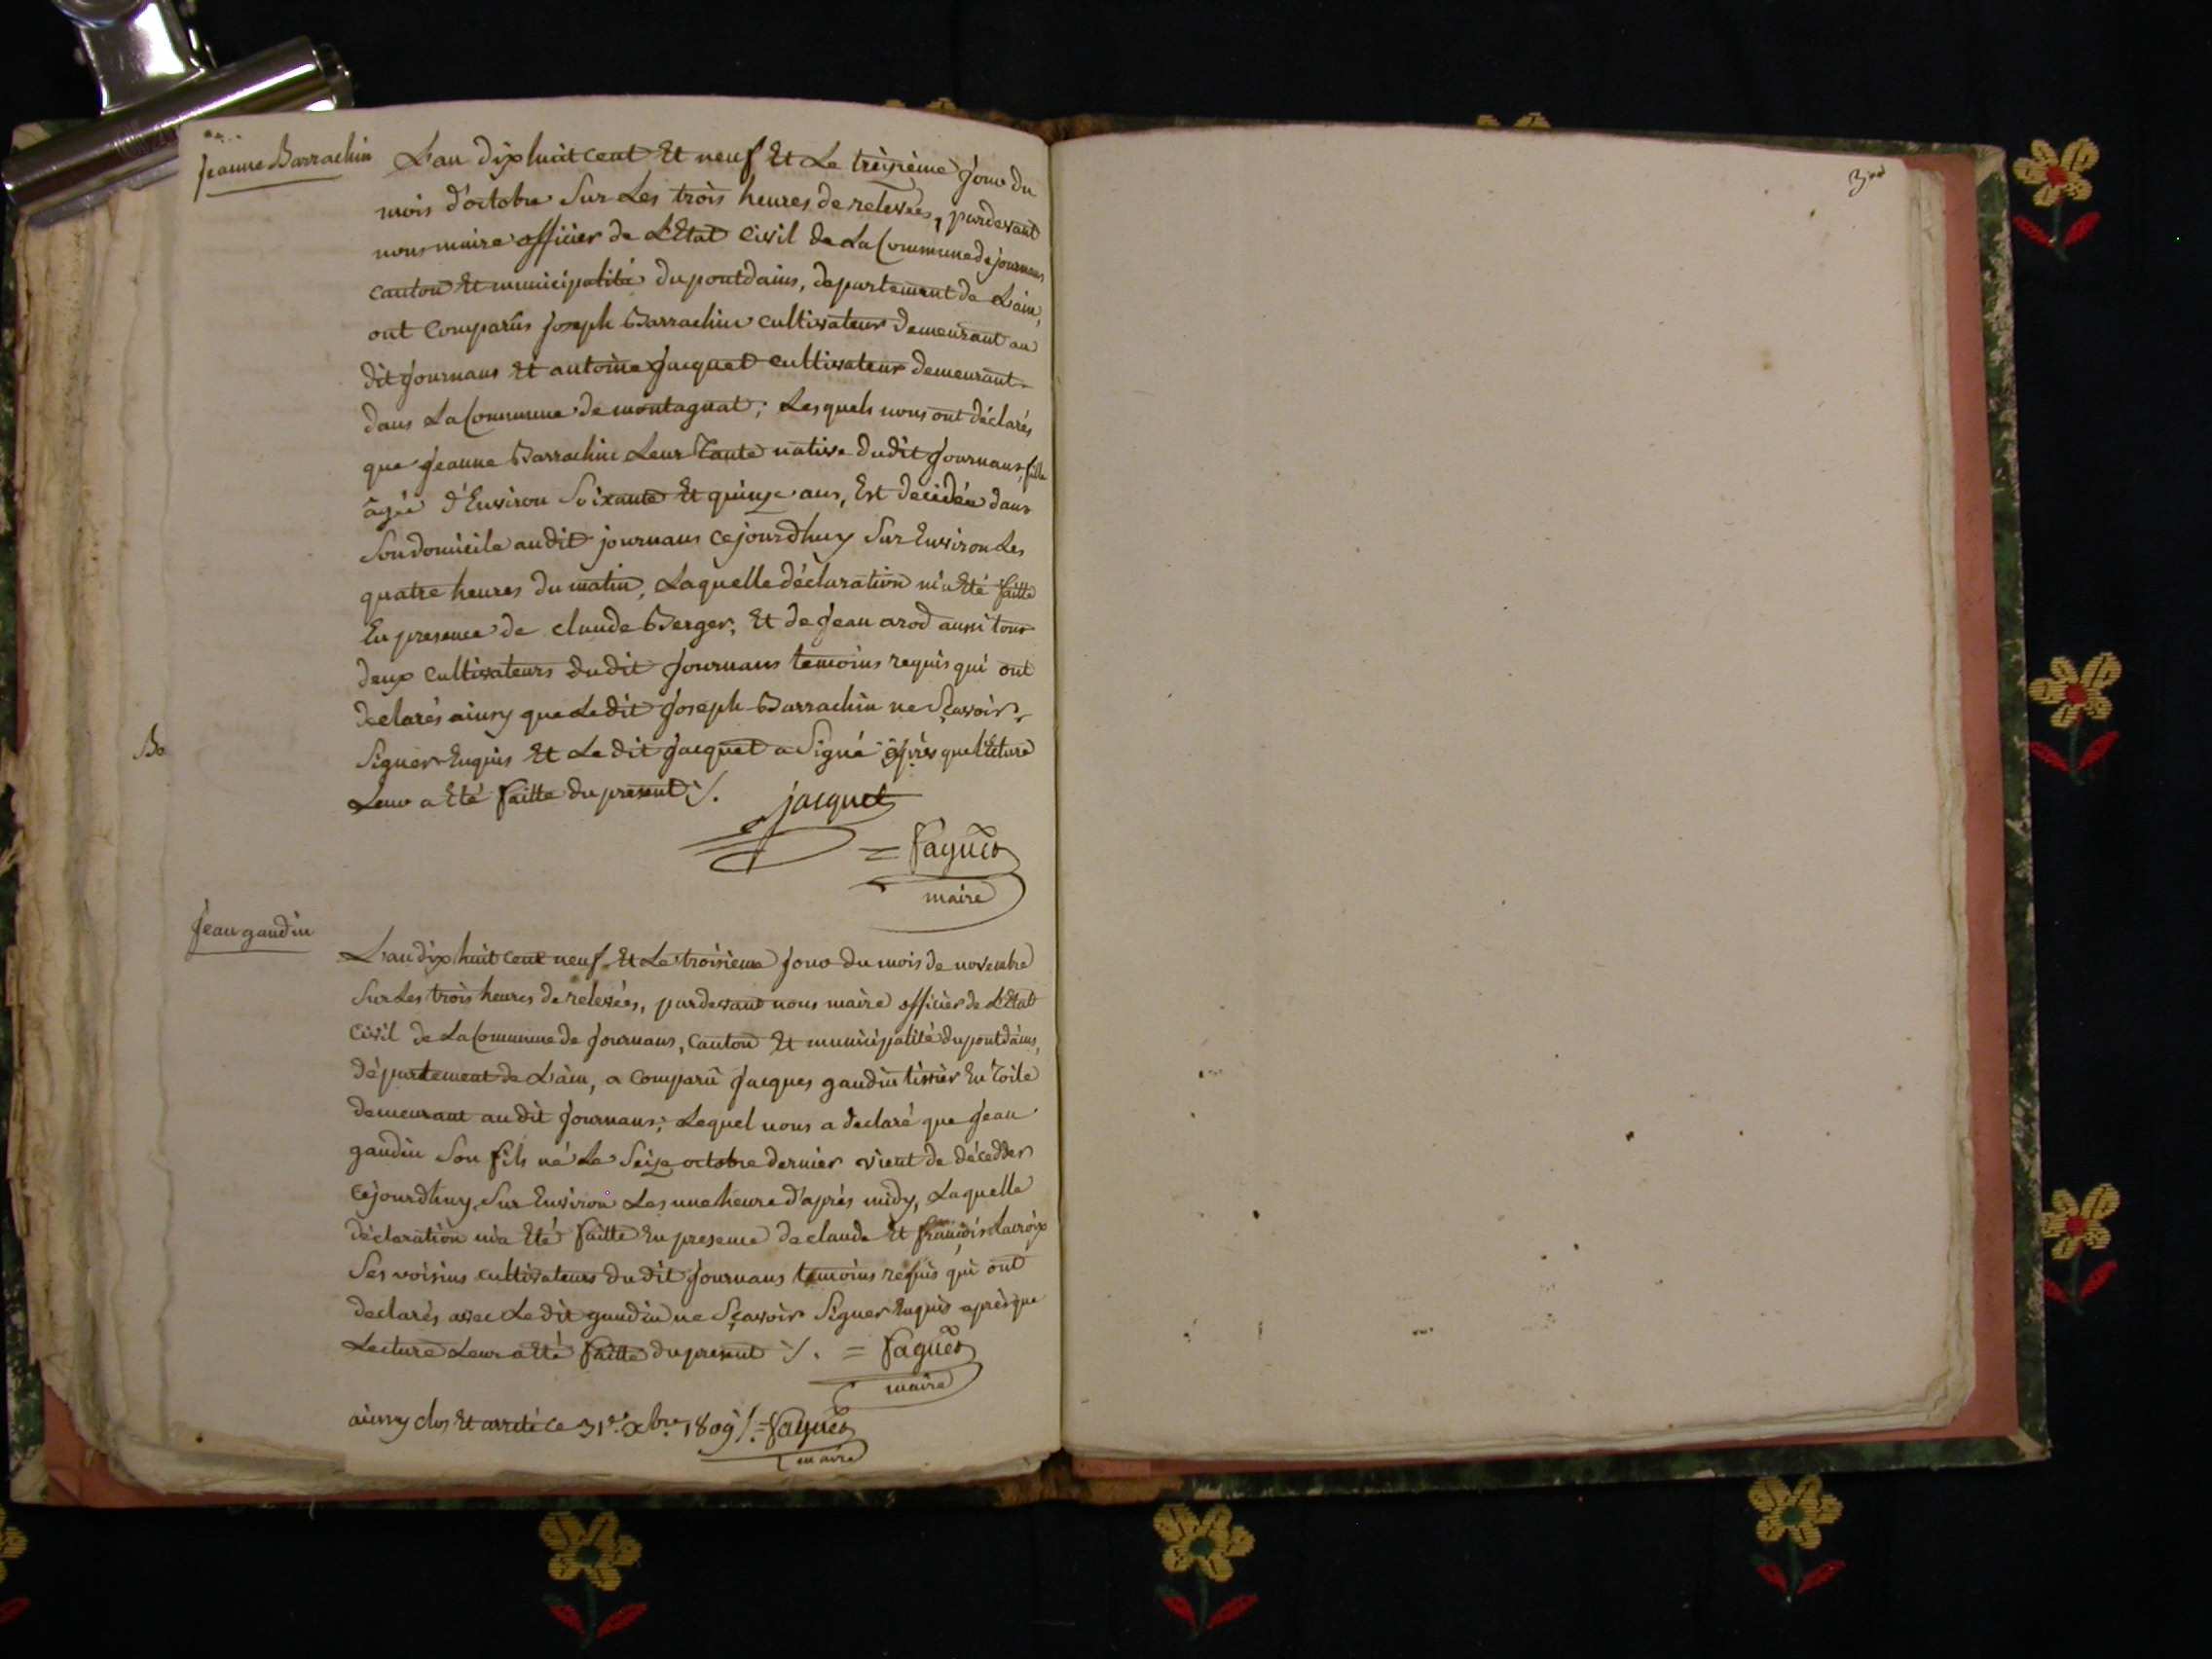 Jeanne Barrachin
L'an dix huit cent Et neuf Et Le treizième Jour du
mois d'octobre Sur Les trois heures de relevées, pardevant
nous maire officier de L'Etat Civil de La Commune de journans
canton Et municipalité du pontdains, departement de L'ain,
ont Comparûs Joseph Barrachin cultivateur demeurant au
dit Journans Et antoine Jacquet cultivateur demeurant
dans La Commune de montagnat; Lesquels nous ont déclarés
que Jeanne Barrachin Leur Tante native dudit Journans, fille
âgée d'Environ Soixante Et quinze ans, Est decidée dans
Son domicile audit journans cejourdhuy Sur Environ Les
quatre heures du matin, Laquelle déclaration m'a Eté faitte
En presence de claude Berger, Et de Jean arod aussi tous
deux cultivateurs dudit Journans temoins requis qui ont
declarés ainsy que Le dit Joseph Barrachin ne Sçavoir
Signer Enquis Et Le dit Jacquet a Signé après que lecture
Leur a Eté faitte du present ./.
jacquet
= faguet
maire
Jean gaudin
L'an dix huit cent neuf Et Le troisième Jour du mois de novembre
Sur Les trois heures de relevées, pardevant nous maire officier de L'Etat
Civil de La Commune de Journans, Canton Et municipalité du pontdains,
département de L'ain, a Comparû Jacques gaudin tissier En Toile
demeurant au dit Journans; Lequel nous a declaré que Jean
gaudin Son fils né Le Seize octobre dernier vient de décedder
cejourdhuy Sur Environ Les une heure d'après midy, Laquelle
déclaration m'a Eté faitte En presence de claude Et françois Lacroix
Ses voisins cultivateurs du dit Journans temoins requis qui ont
declarés avec Le dit gaudin ne Sçavoir Signer Enquis après que
Lecture Leur a Eté faitte du present ./. = faguet
maire
ainsy clos Et arreté ce 31e. xbre. 1809 ./. = faguet
maire